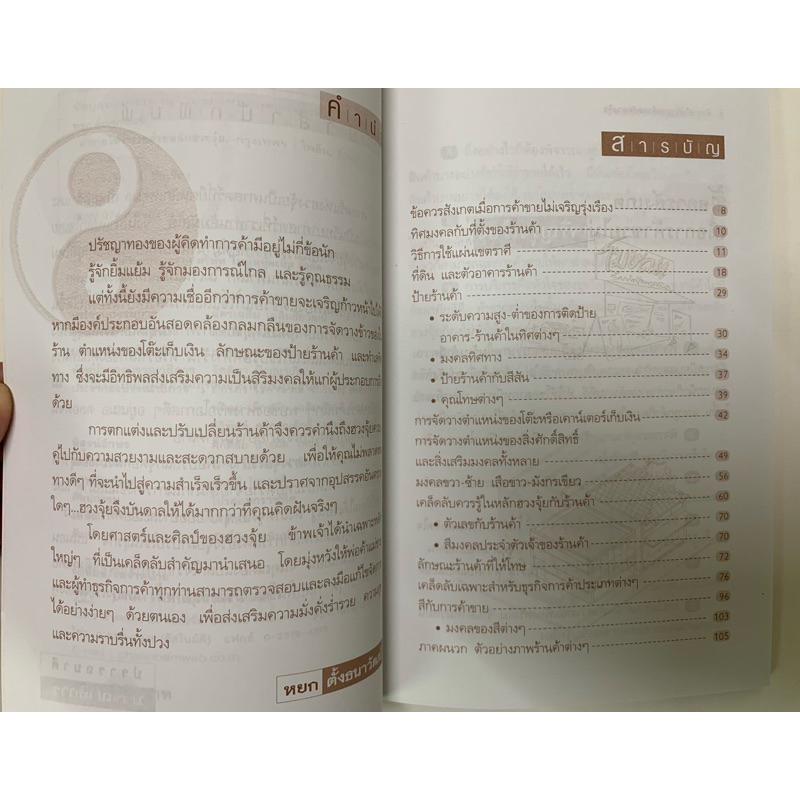 คำนำ
ปรัชญาทองของผู้คิดทำการค้ามีอยู่ไม่กี่ข้อนัก
รู้จักยิ้มแย้ม รู้จักมองการณ์ไกล และรู้คุณธรรม
แต่ทั้งนี้ยังมีความเชื่ออีกว่าการค้าขายจะเจริญก้าวหน้าไป
หากมีองค์ประกอบอันสอดคล้องกลมกลืนของการจัดวางข้าวของ
ร้าน ตำแหน่งของโต๊ะเก็บเงิน ลักษณะของป้ายร้านค้า และ
ทาง ซึ่งจะมีอิทธิพลส่งเสริมความเป็นสิริมงคลให้แก่ผู้ประกอบการ
ด้วย
การตกแต่งและปรับเปลี่ยนร้านค้าจึงควรคำนึงถึงฮวงจุ้ย
คู่ไปกับความสวยงามและสะดวกสบายด้วย เพื่อให้คุณไม่พลาด
ทางดีๆ ที่จะนำไปสู่ความสำเร็จเร็วขึ้น และปราศจากอุปสรรค
ใดๆ...ฮวงจุ้ยจึงบันดาลให้ได้มากกว่าที่คุณคิดฝันจริงๆ
โดยศาสตร์และศิลป์ของฮวงจุ้ย ข้าพเจ้าได้นำเฉพาะ
ใหญ่ๆ ที่เป็นเคล็ดลับสำคัญมานำเสนอ โดยมุ่งหวังให้พ่อค้า
และผู้ทำธุรกิจการค้าทุกท่านสามารถตรวจสอบและลงมือแก้ไข
ได้อย่างง่ายๆ ด้วยตนเอง เพื่อส่งเสริมความมั่งคั่งร่ำรวย
และความราบรื่นทั้งปวง
หยก ตั้งธนาวัฒน์
สารบัญ
ข้อควรสังเกตเมื่อการค้าขายไม่เจริญรุ่งเรือง 8
ทิศมงคลกับที่ตั้งของร้านค้า 10
วิธีการใช้แผ่นเขตราศี 11
ที่ดิน และตัวอาคารร้านค้า 18
ป้ายร้านค้า 29
• ระดับความสูง-ต่ำของการติดป้าย
อาคาร-ร้านค้าในทิศต่างๆ 30
• มงคลทิศทาง 34
• ป้ายร้านค้ากับสีสัน 37
• คุณโทษต่างๆ 39
การจัดวางตำแหน่งของโต๊ะหรือเคาน์เตอร์เก็บเงิน 42
การจัดวางตำแหน่งของสิ่งศักดิ์สิทธิ์
และสิ่งเสริมมงคลทั้งหลาย 49
มงคลขวา-ซ้าย เสือขาว-มังกรเขียว 56
เคล็ดลับควรรู้ในหลักฮวงจุ้ยกับร้านค้า 60
• ตัวเลขกับร้านค้า 70
• สีมงคลประจำตัวเจ้าของร้านค้า 70
ลักษณะร้านค้าที่ให้โทษ 72
เคล็ดลับเฉพาะสำหรับธุรกิจการค้าประเภทต่างๆ 76
สีกับการค้าขาย 96
• มงคลของสีต่างๆ 103
ภาคผนวก ตัวอย่างภาพร้านค้าต่างๆ 105